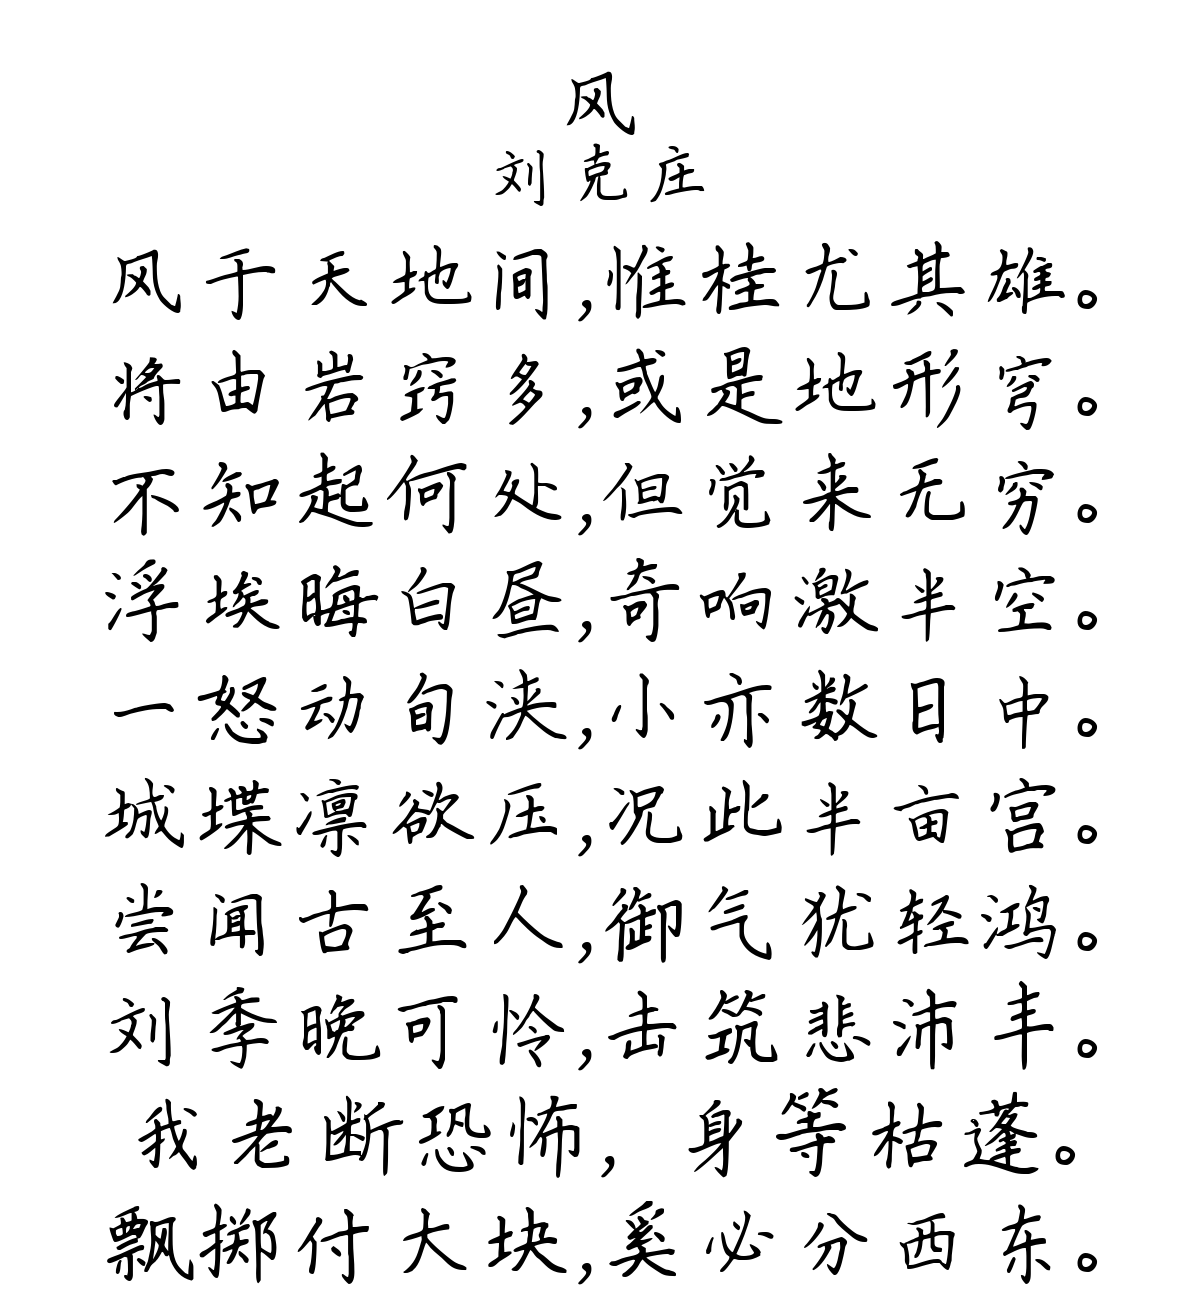 风
刘克庄
风于天地间,惟桂尤其雄。
将由岩窍多,或是地形穹。
不知起何处,但觉来无穷。
浮埃晦白昼,奇响激半空。
一怒动旬浃,小亦数日中。
城堞凛欲压,况此半亩宫。
尝闻古至人,御气犹轻鸿。
刘季晚可怜,击筑悲沛丰。
我老断恐怖, 身等枯蓬。
飘掷付大块,奚必分西东。